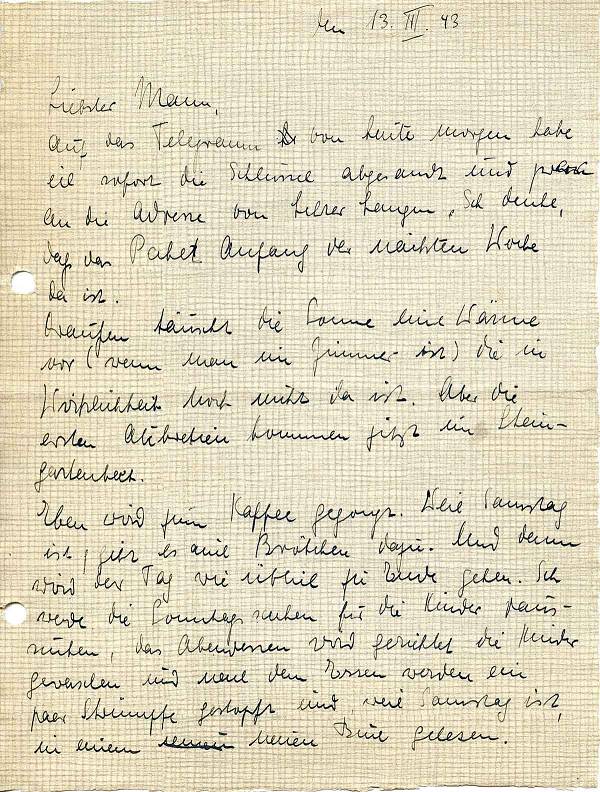 den 13. III. 43
Liebster Mann,
Auf das Telegramm von heute morgen habe
ich sofort die Schlüssel abgesandt und
an die Adresse von Langen. Ich denke,
daß das Paket Anfang der nächsten Woche
da ist.
Draußen täuscht die Sonne eine Wärme
vor (wenn man im Zimmer ist) die in
Wirklichkeit noch nicht da ist. Aber die
ersten kommen jetzt im Stein-
gartenbeet.
Eben wird zum Kaffee gegongt. Weil Samstag
ist, gibt es auch Brötchen dazu. Und dann
wird der Tag wie üblich zu Ende gehen. Ich
werde die Sonntagssachen für die Kinder
suchen, das Abendessen wird gerichtet die Kinder
gewaschen und nach dem Essen werden ein
paar Strümpfe gestopft und, weil Samstag ist,
in einem neuen Buch gelesen.